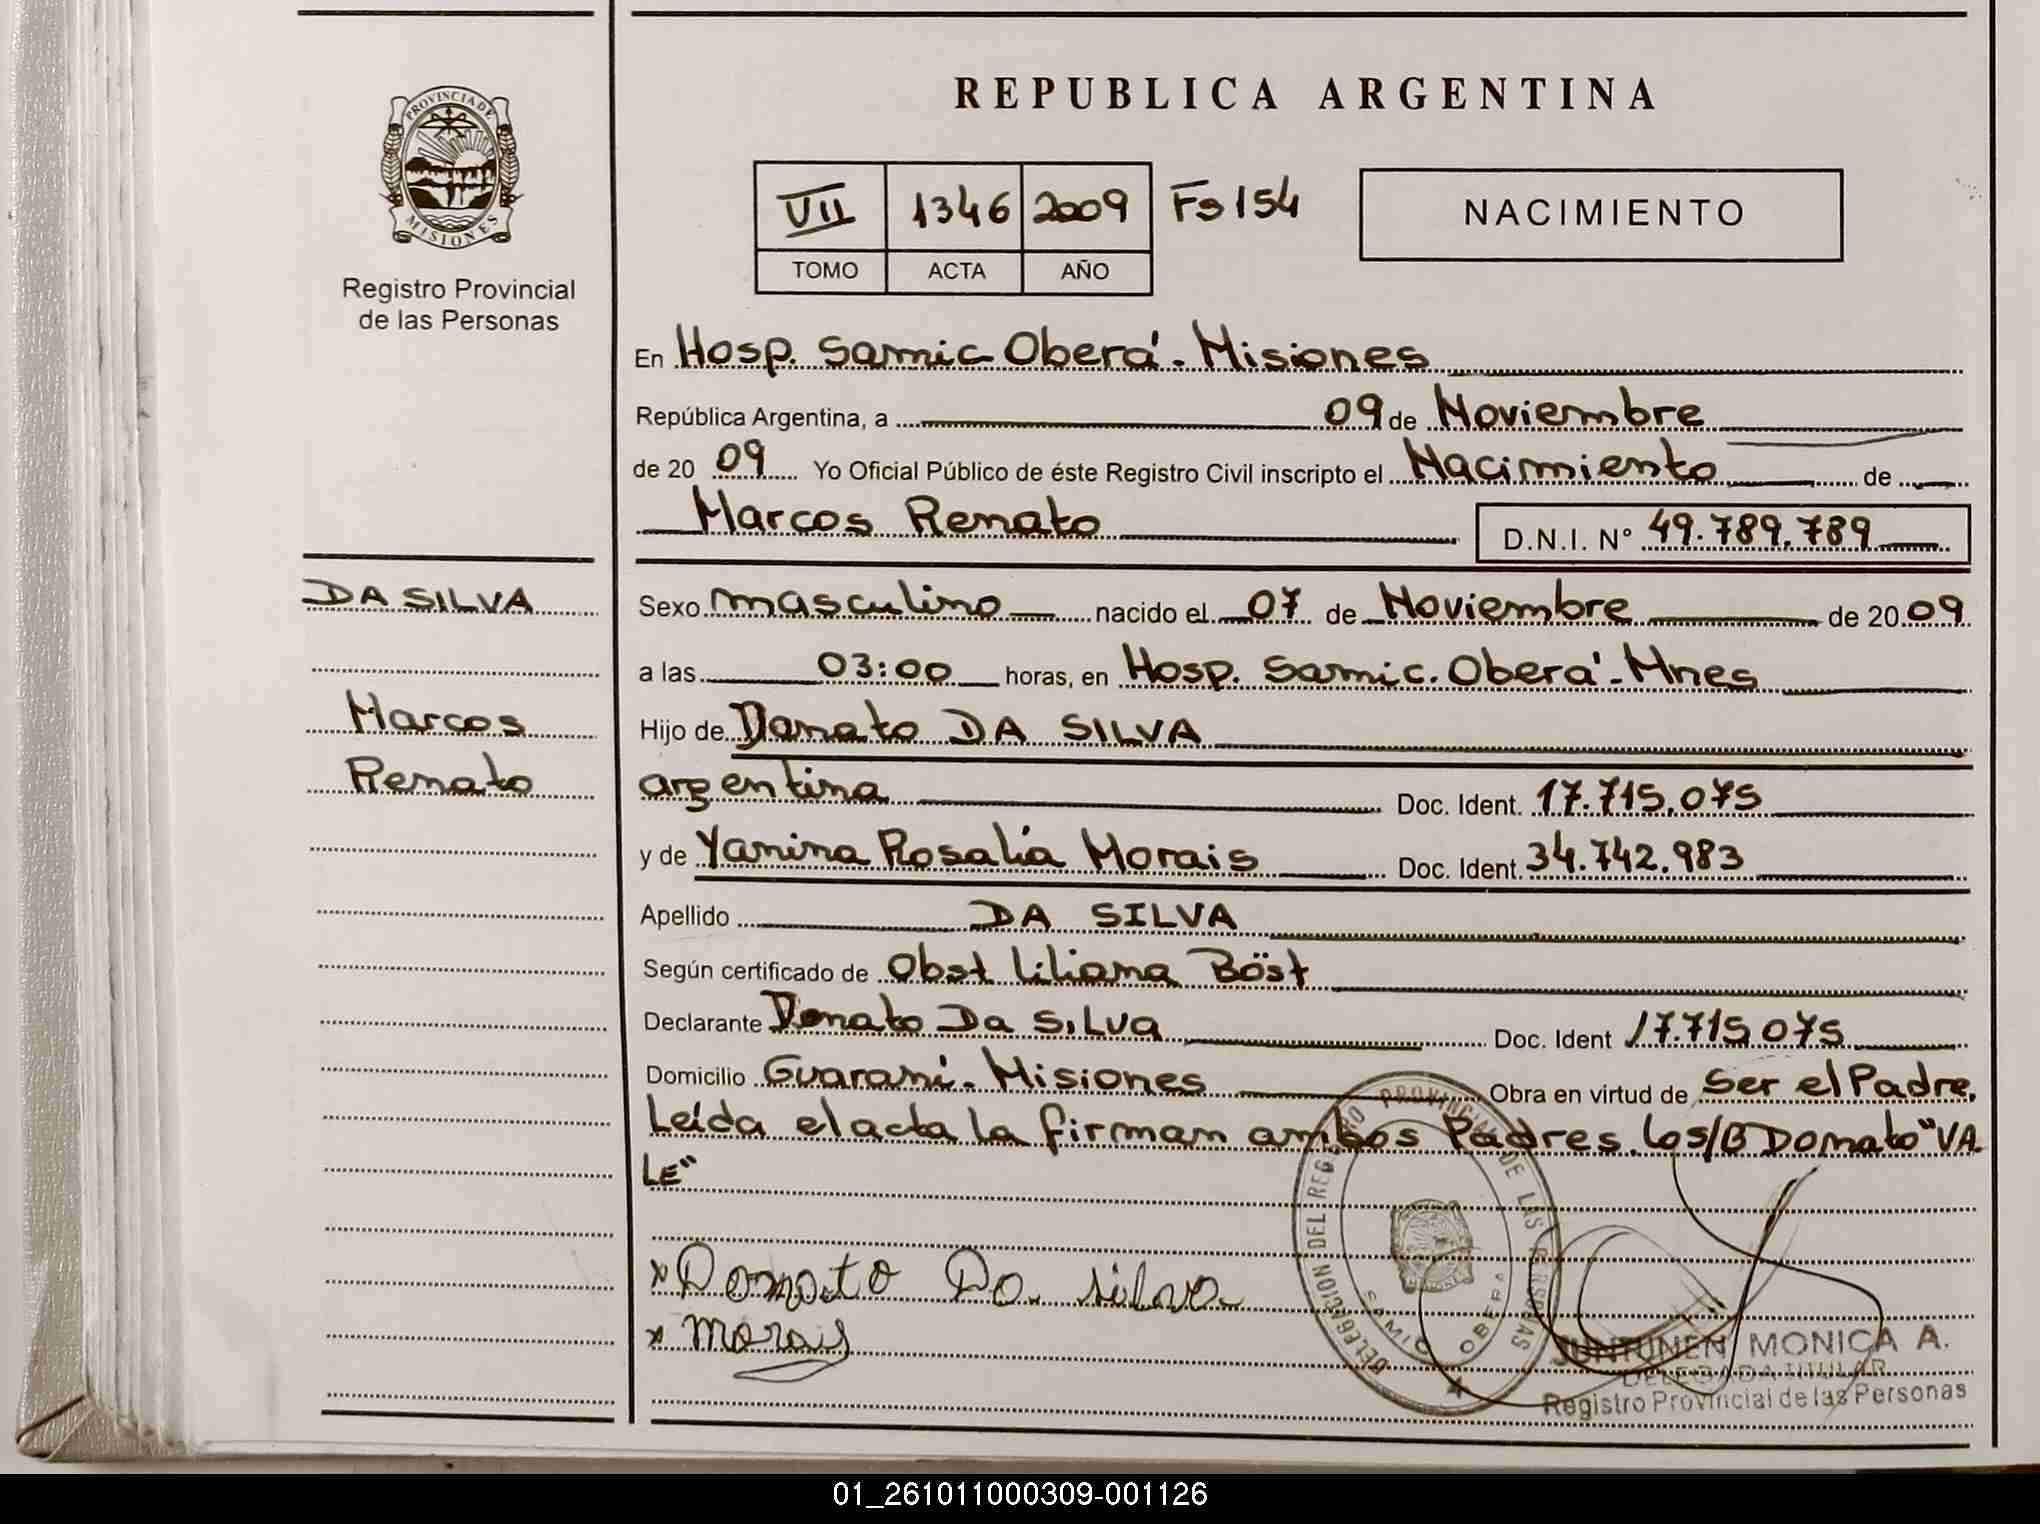 PROVINCIA DE
MISIONES
Registro Provincial
de las Personas
REPUBLICA ARGENTINA
VII 1346 2009 Fs 154
TOMO ACTA AÑO
NACIMIENTO
En Hosp. Samic Oberá - Misiones
República Argentina, a 09 de Noviembre
de 20 09 Yo Oficial Público de éste Registro Civil inscripto el Nacimiento de
Marcos Renato D.N.I. N° 49.789.789
DA SILVA
Marcos
Renato
Sexo masculino nacido el 07 de Noviembre de 20 09
a las 03:00 horas, en Hosp. Samic. Oberá - Mnes
Hijo de Donato DA SILVA
argentina Doc. Ident. 17.715.075
y de Yanina Rosalía Morais Doc. Ident. 34.742.983
Apellido DA SILVA
Según certificado de Obst Liliana Böst
Declarante Donato Da SiLva Doc. Ident 17.715 075
Domicilio Guaraní - Misiones Obra en virtud de Ser el Padre.
Leída el acta la firman ambos Padres. Lo s/B Donato "VA
LE"
x Donato Da silva
x morais
DELEGACION DEL REGISTRO PROVINCIAL DE LAS PERSONAS
SAMIC OBERA
JUNTUNEN MONICA A.
DELEGADA TITULAR
Registro Provincial de las Personas
01_261011000309-001126